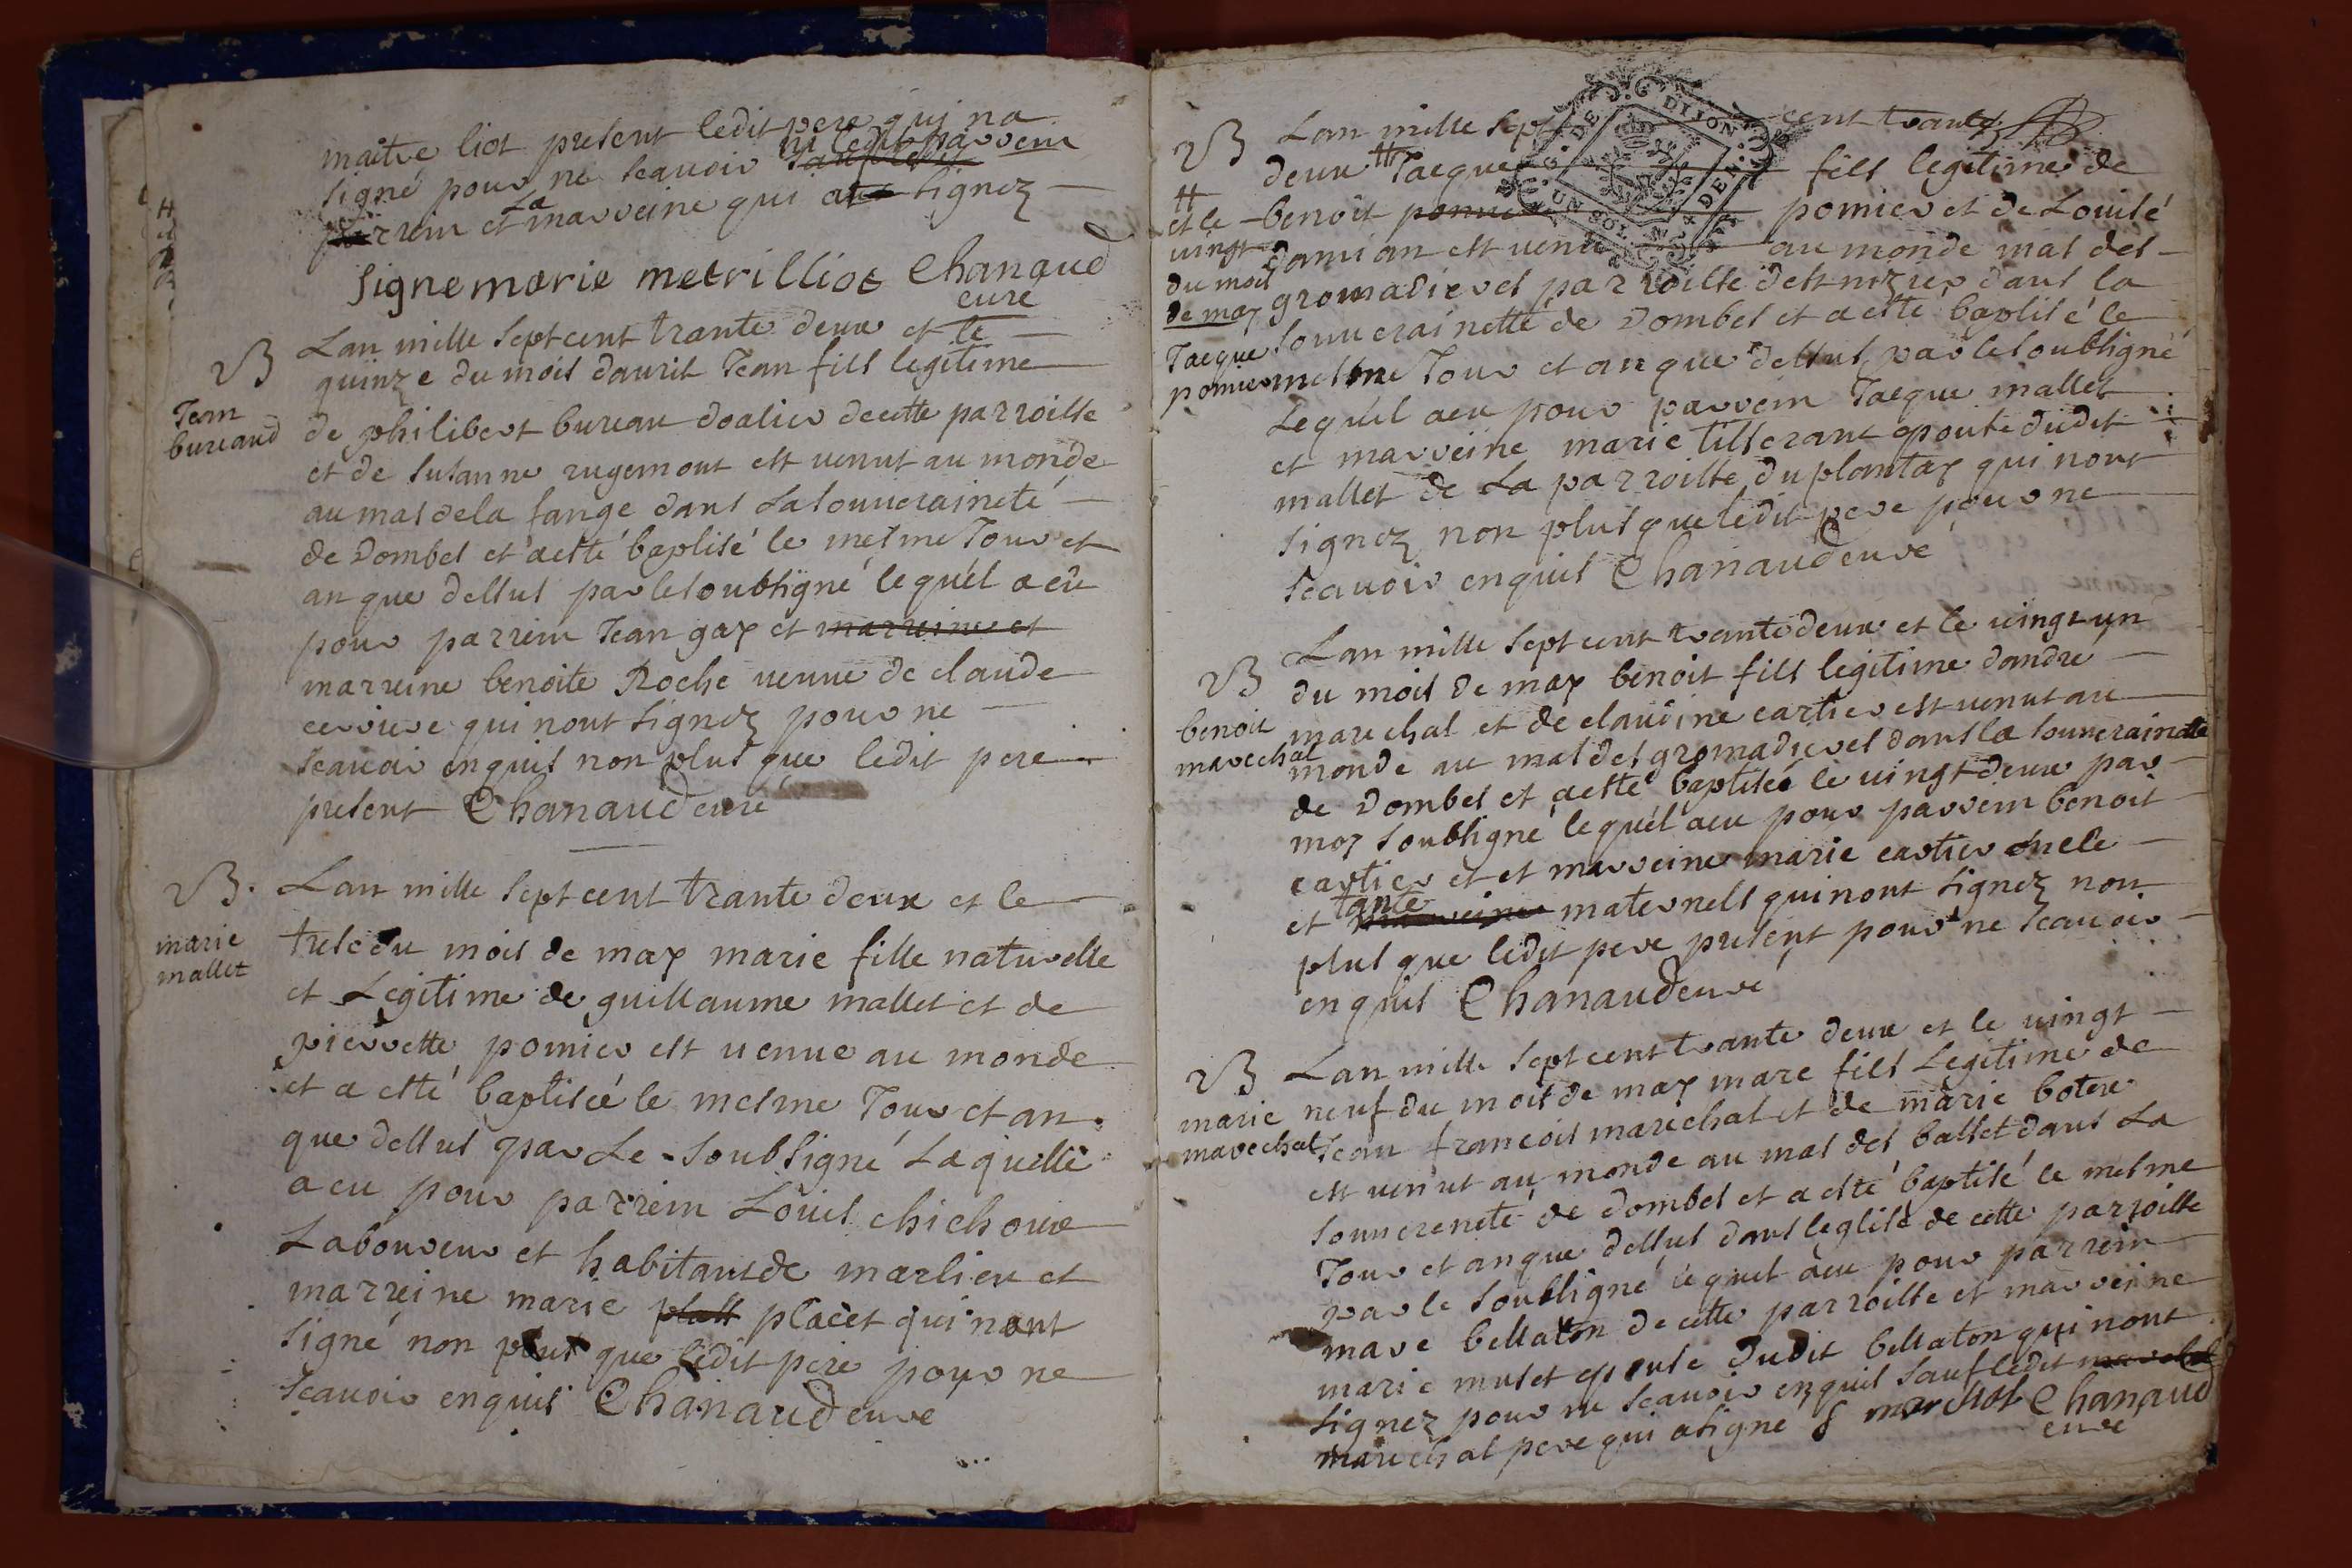 maitre liot present ledit pere qui na
signé pour ne scauoir ni ledit parrein
parrein et La marreine qui a signez
signe marie metrilliot Chanaud
curé
B Lan mille sept cent trante deux et le
quinze du mois dauril Jean fils legitime
Jean
bureaud
de philibert bureau doalier de cette parroisse
et de susanne rugemont est uenut au monde
au mas de la fange dans La souueraineté
de Dombes et a esté baptisé le mesme Jour et
an que dessus par le soubsigné lequel a eu
pour parrein Jean gay et marreine et
marreine benoite Roche ueuue de claude
ceruiere qui nont signez pour ne
scauoir enquis non plus que ledit pere
present Chanaud curé
B. Lan mille sept cent trante deux et le
marie
mallet
trese du mois de may marie fille naturelle
et Legitime de guillaume mallet et de
pierrette pomier est uenue au monde
et a esté baptiseé le mesme Jour et an
que dessus par Le soubsigné Laquelle
a eu pour parrein Louis chichoux
Laboureur et habitant de marlieu et
marreine marie platt placet qui nont
signé non plus que ledit pere pour ne
scauoir enquis Chanaud curé
DE DIJON
UN SOL
DEN
B Lan mille sept cent trante
deux # Jacque fils legitime de
benoit pomier pomier et de Louise
# et le
uingt
du mois
de may
damian est uenu au monde mas des
gromadieres parroisse des
dans la
souuerainetté de Dombes et a esté baptisé le
Jacque
pomier
mesme Jour et an que dessus par le soubsigné
Lequel a eu pour parrein Jacque mallet
et marreine marie tisserant epouse dudit
mallet de La parroisse du plantay qui nont
signez non plus que ledit pere pour ne
scauoir enquis Chanaud curé
B Lan mille sept cent trante deux et le uingt un
du mois de may benoit fils legitime dandré
benoit
marechal
marechal et de claudine cartier est uenut au
monde au mas des gromadieres dans la souuerainette
de Dombes et a esté baptiseé le uingt deux par
moy soubsigné lequel a eu pour parrein benoit
cartier et et marreine marie cartier oncle
et marreine tante maternels qui nont signez non
plus que ledit pere present pour ne scauoir
enquis Chanaud curé
B Lan mille sept cent trante deux et le uingt
marie
marechal
neuf du mois de may marc fils Legitime de
Jean francois marechal et de marie botere
est uenut au monde au mas des basset dans La
souuereneté de Dombes et a esté baptisé le mesme
Jour et an que dessus dans leglise de cette parroisse
par le soubsigné lequel a eu pour parrein
marc bellaton de cette parroisse et marreine
marie muset epouse dudit bellaton qui nont
signez pour ne scauoir enquis sauf ledit marechal
marechal pere qui a signé f marchal Chanaud
curé